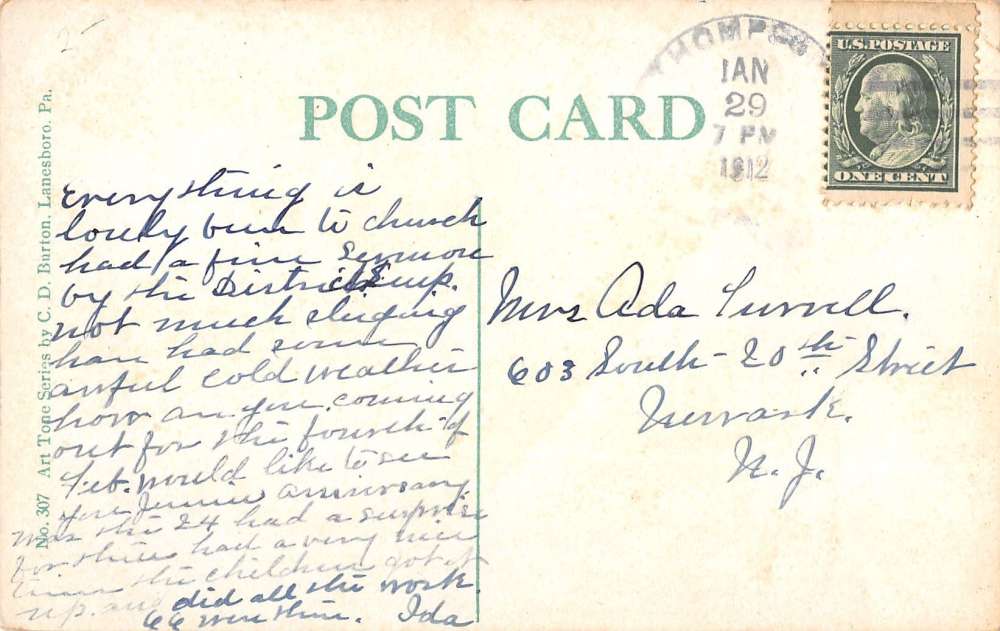 2-
THOMPSO
JAN
29
7 PM
1912
U.S. POSTAGE
ONE CENT
POST CARD
No. 307 Art Tone Series by C. D. Burton, Lanesboro, Pa.
Everything is
lovely been to church
had a fine Sermon
by the District Sup.
not much sleighing
have had some
awful cold weather
how are you. coming
out for the fourth of
Feb. would like to see
you Jennies anniversary
was the 24 had a surprise
for them had a very nice
time the children got it
up. and did all the work
66 were there. Ida
Mrs Ada
603 South - 20th Street
Newark.
N. J.